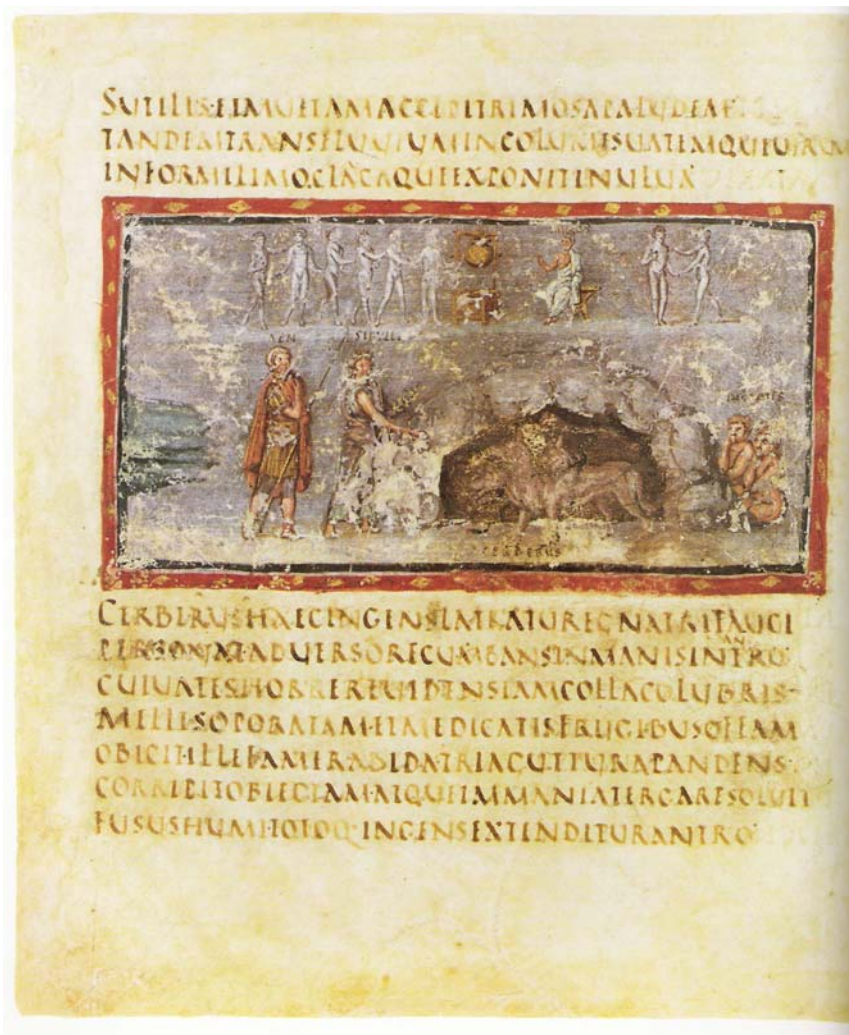 SUTILISETMULTAMACCEPITRIMOSAPALUDEM
TANDEMTRANSFLUUIUMINCOLUMISUATEMQUEUIRUM
INFORMILIMOGLAUCAQUEEXPONITINULUA
AEN SIBYLLA
CERBERUS
CERBERUSHAECINGENSLATRATUREGNATRIFAUCI
AN
PERSONATADUERSORECUMBANSINMANISINTRO
CUIUATESHORREREUIDENSIAMCOLLACOLUBRIS
MELLESOPORATAMETMEDICATISFRUGIBUSOFFAM
OBICITILLEFAMERABIDATRIAGUTTURAPANDENS
CORRIPITOBIECTAMATQUEIMMANIATERGARESOLUIT
FUSUSHUMITOTOQ·INGENSEXTENDITURANTRO